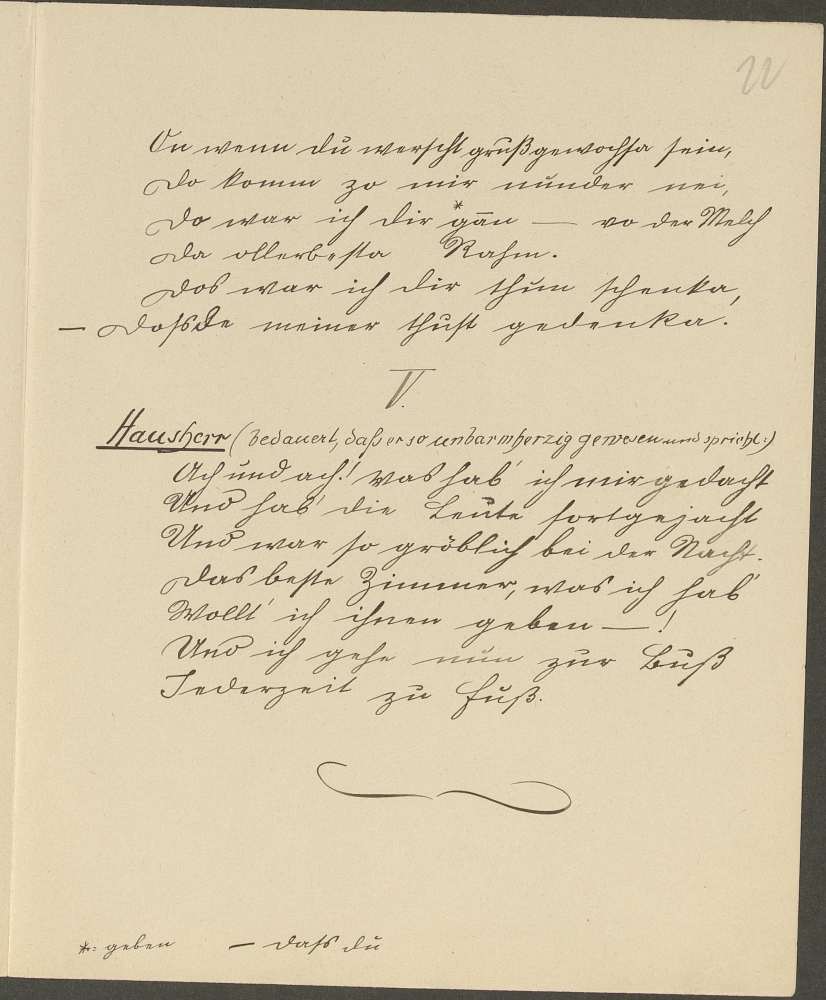 22
On wenn du werscht grußgewochsa sein,
Do komm zo mir nunder nei,
Do war ich dir *gān — vo der Melch
Da ollerbesta Rahm.
Dos war ich dir thun schenka,
— Doßde meiner thust gedenka.
V.
Hausherr (bedauert, daß er so unbarmherzig gewesen und spricht:)
Ach und ach! was hab' ich mir gedacht
Und hab' die Leute fortgejacht
Und war so gröblich bei der Nacht.
Das beste Zimmer, was ich hab'
Wollt' ich ihnen geben —!
Und ich gehe nun zur Buß
Jederzeit zu Fuß.
*: geben — daß du